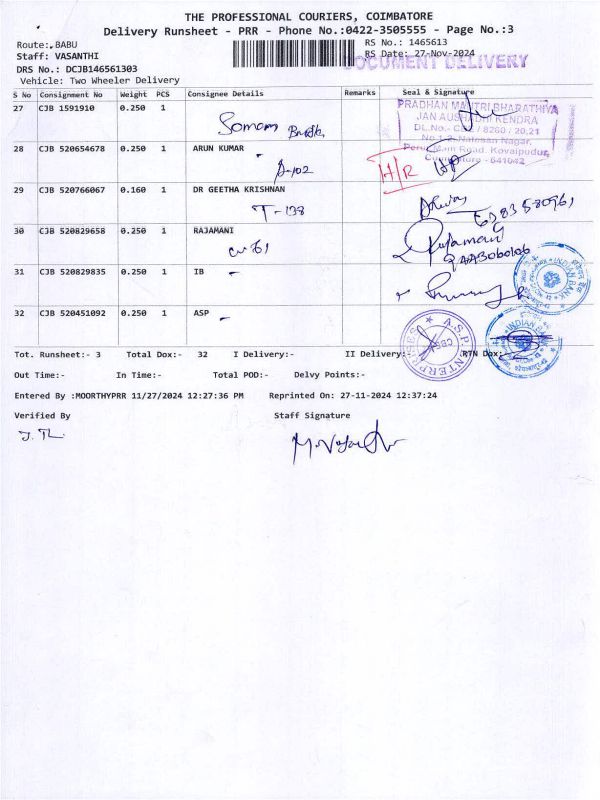 THE PROFESSIONAL COURIERS, COIMBATORE
Delivery Runsheet - PRR - Phone No.:0422-3505555 - Page No.:3
Route: BABU
RS No.: 1465613
Staff: VASANTHI
RS Date: 27-Nov-2024
DOCUMENT DELIVERY
DRS No.: DCJB146561303
Vehicle: Two Wheeler Delivery
S No Consignment No Weight PCS Consignee Details Remarks Seal & Signature
27 CJB 1591910 0.250 1
PRADHAN MANTRI BHARATHIYA
JAN AUSHADHI KENDRA
28 CJB 520654678 0.250 1 ARUN KUMAR -
A-102
H/R
29 CJB 520766067 0.160 1 DR GEETHA KRISHNAN
T-138
30 CJB 520829658 0.250 1 RAJAMANI
Rajamani
31 CJB 520829835 0.250 1 IB -
INDIAN BANK
32 CJB 520451092 0.250 1 ASP -
A.S.P. ENTERPRISES
CBE
INDIAN BANK
Tot. Runsheet:- 3 Total Dox:- 32 I Delivery:- II Delivery:- RTN Dox:
Out Time:- In Time:- Total POD:- Delvy Points:-
Entered By :MOORTHYPRR 11/27/2024 12:27:36 PM Reprinted On: 27-11-2024 12:37:24
Verified By Staff Signature